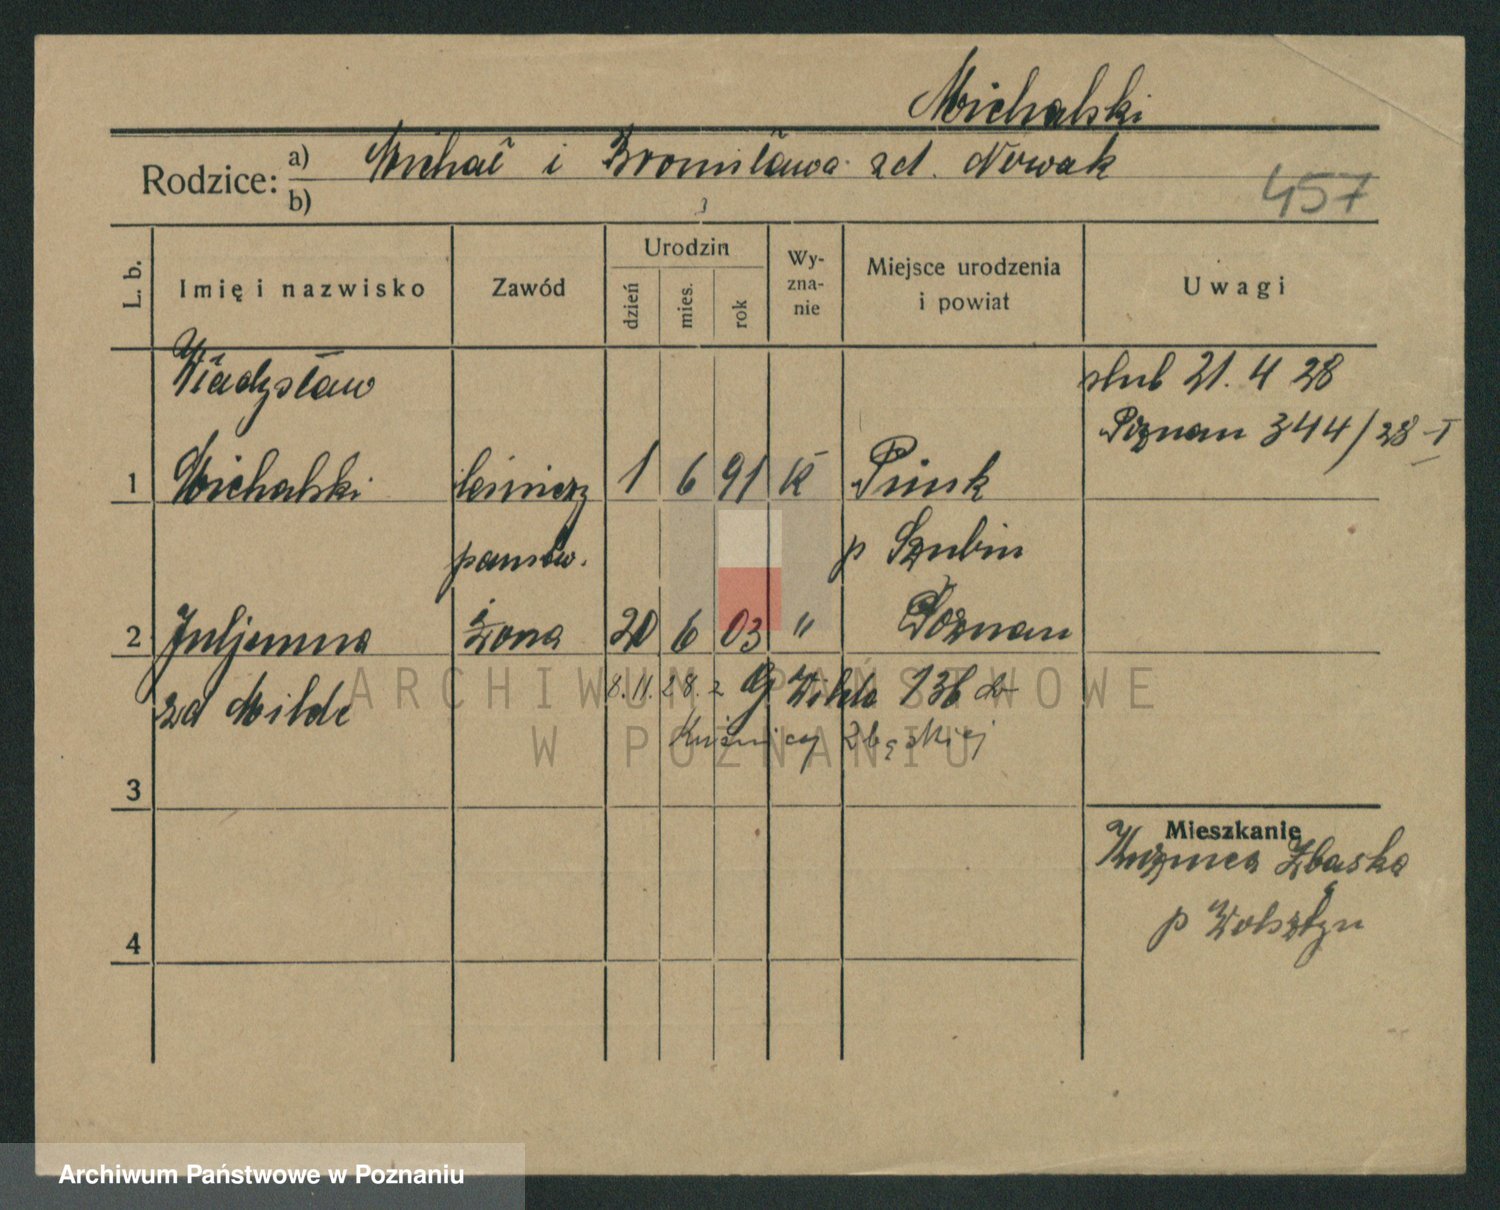 Michalski
Rodzice: a) Michał i Bronisława zd. Nowak
b)
457
L. b.
Imię i nazwisko
Zawód
Urodzin
dzień
mies.
rok
Wy-
zna-
nie
Miejsce urodzenia
i powiat
Uwagi
Władysław
ślub 21. 4 28
Poznan 344/28 I
1 Michalski leśniczy 1 6 91 K
państw. p Szubin
2 Juljanna żona 20 6 03 " Poznan
zd Milde 8.11.28. z G Wilda 136 do
Kuźnicy Zbąskiej
3
Mieszkanie
Kuźnica Zbąska
p Wolsztyn
4
ARCHIWUM PAŃSTWOWE
W POZNANIU
Archiwum Państwowe w Poznaniu